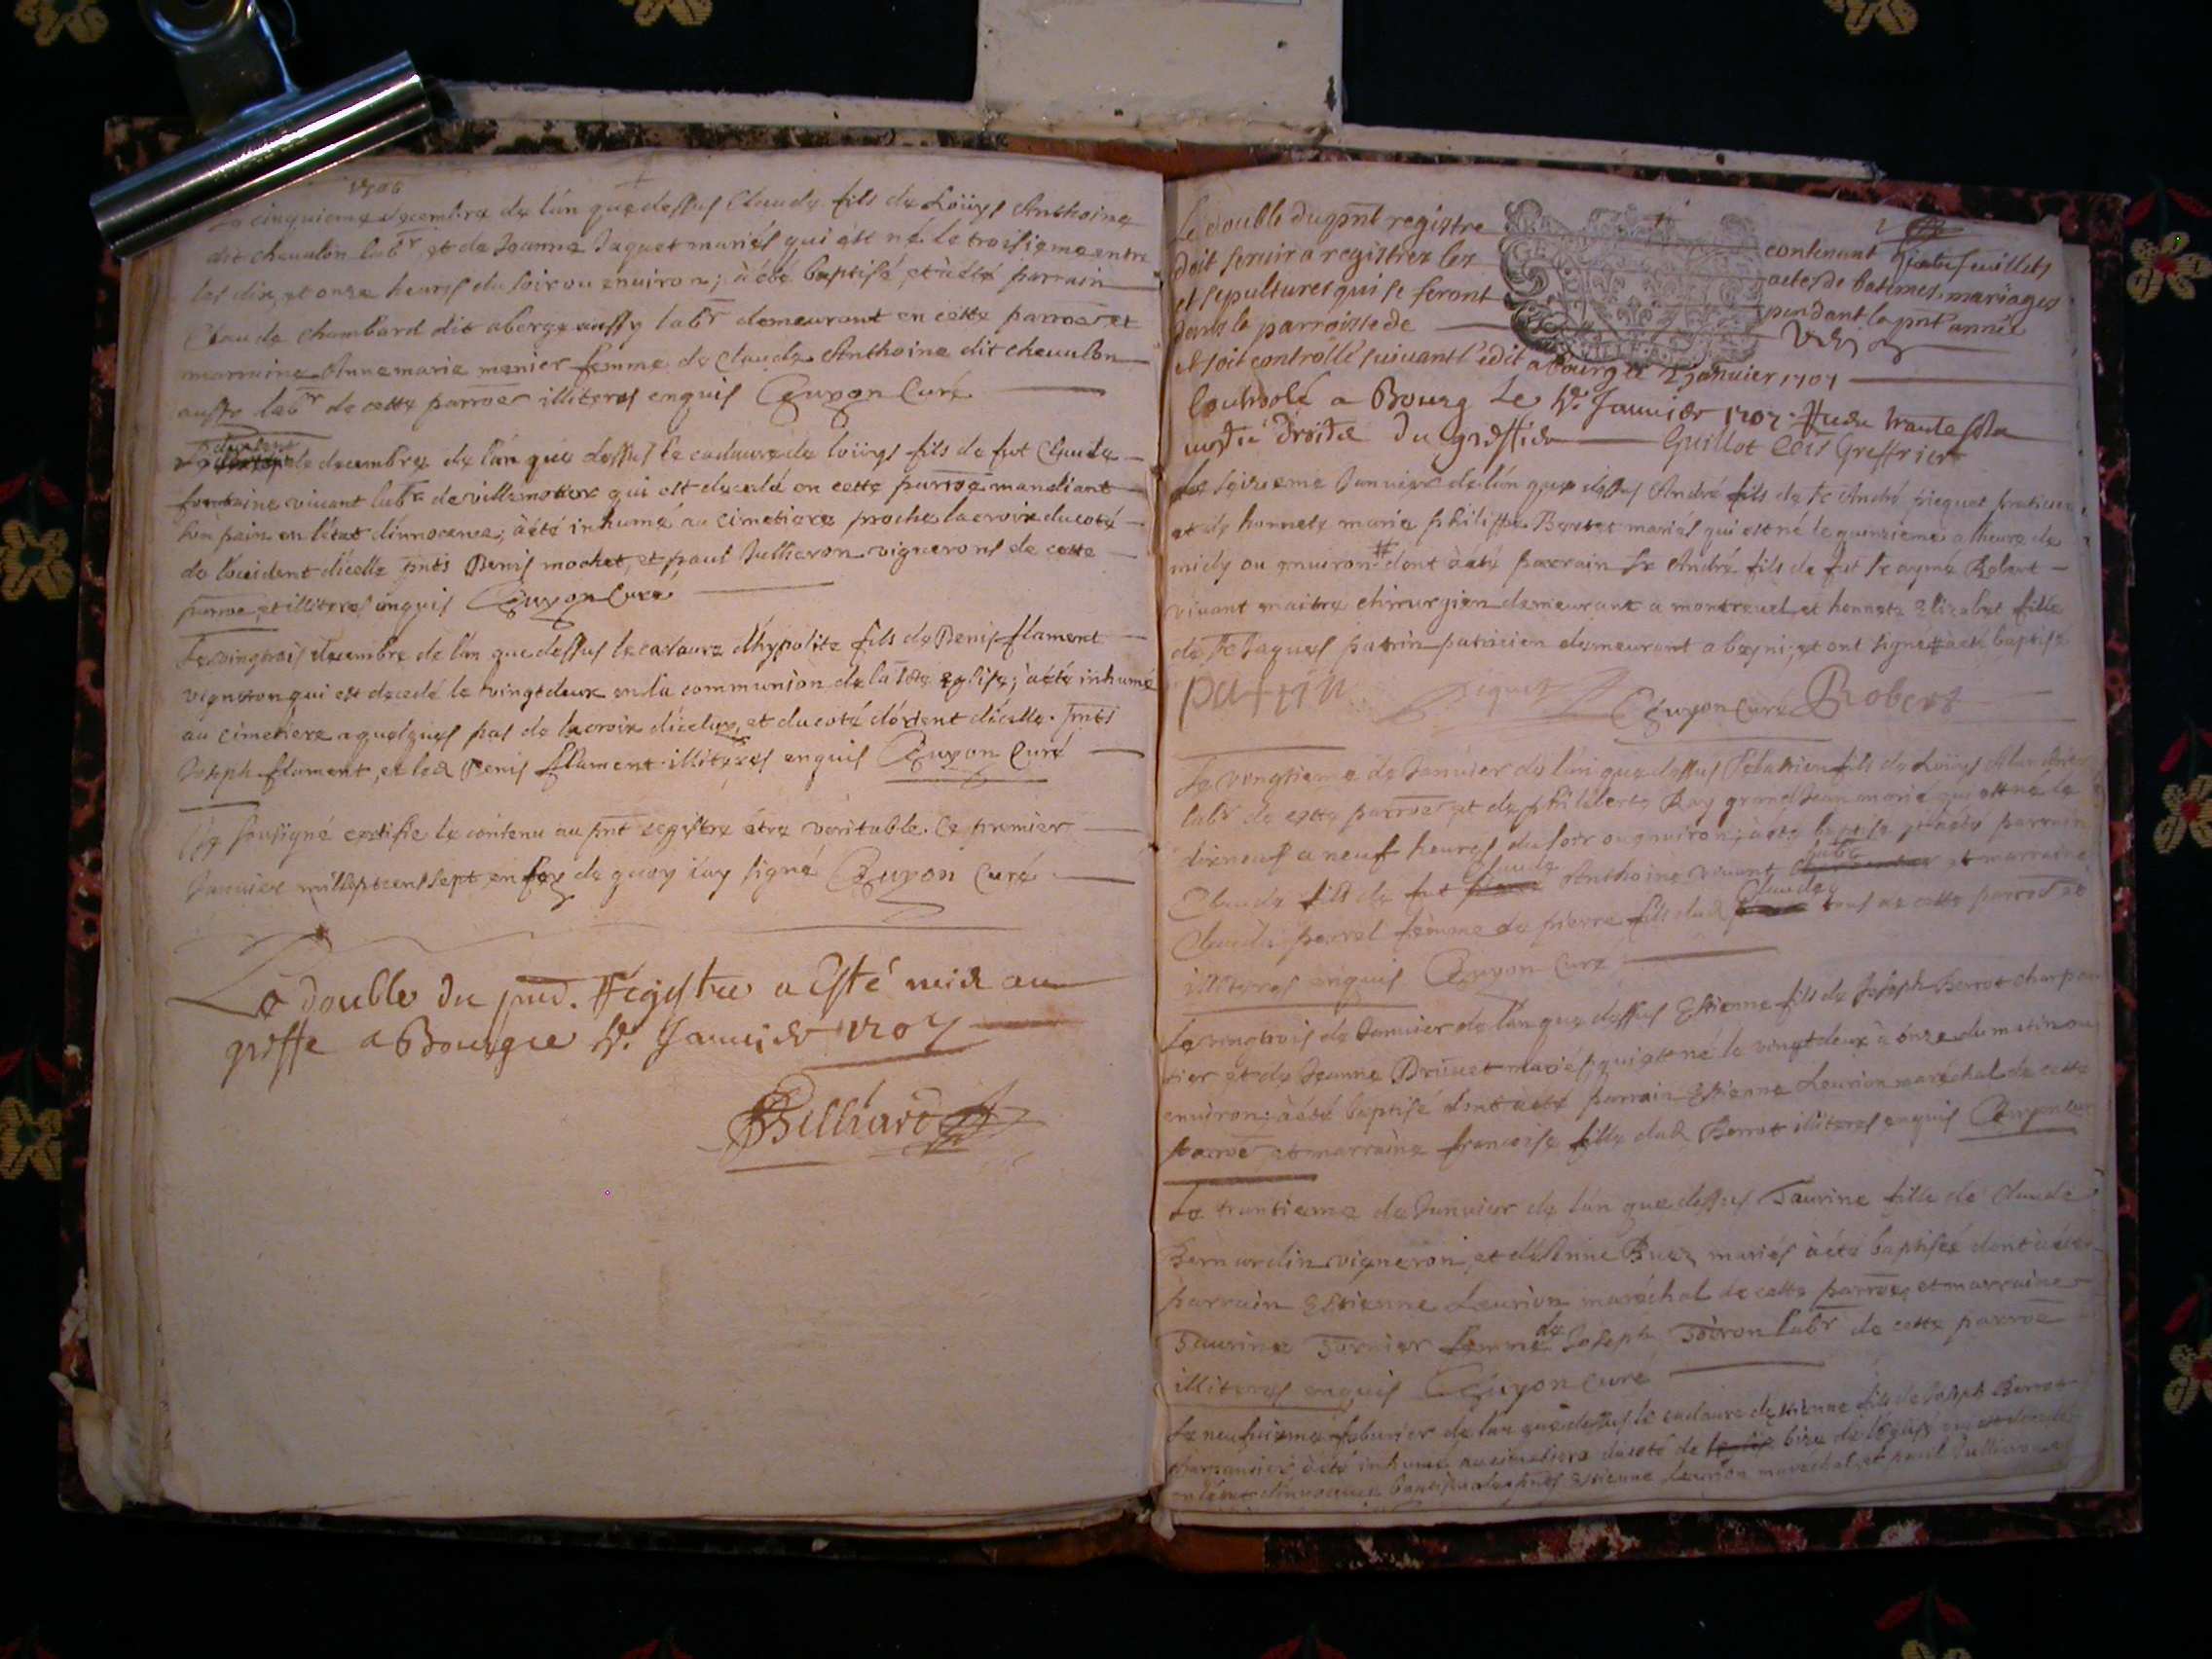 1706
Le cinquieme decembre de l'an que dessus Claude fils de Loüys Anthoine
dit cheualon lab.r et de Jeanne Jaquet mariés qui est né le troisieme entre
les dix, et onze heures du soir ou enuiron; à été baptisé, et à été parrain
Claude chambard dit aberge aussy lab.r demeurant en cette parroe et
marraine Annemarie menier femme de Claude Anthoine dit cheualon
aussy lab.r de cette parroe illiteres enquis Guyon Curé
decembre de l'an que dessus le cadaure de loüys fils de fut Claude
fontaine viuant lab.r de villemotier qui est decedé en cette parroe mandiant
son pain en l'état d'innocence; à été inhumé au cimetiere proche la croix du coté
de l'occident d'icelle pnts Denis mochet, et paul Jullieron vignerons de cette
parroe, et illiteres enquis Guyon Curé
Le vingtrois decembre de l'an que dessus le cadaure d'hypolite fils de Denis flament
vigneron qui est decedé le vingtdeux en la communion de la Ste eglise; à été inhumé
au cimetiere a quelques pas de la croix d'iceluy, et du coté d'orient d'icelle. pnts
Joseph flament, et led Denis flament illiteres enquis Guyon Curé
Je soussigné certifie le contenu au pnt registre étre veritable. Ce premier
Januier mil sept cens sept en foy de quoy i'ay signé Guyon Curé
Le double du pnt. Registre a Esté mis au
greffe a Bourg ce Januier 1707
Billiard
Le double du pnt registre continuant feuillets
doit seruir a registrer les actes de batimes, mariages
et sepultures qui se feront pendant la pnt année
dans la parroisse de
et soit controllé suiuant l'edit a bourg ce 2 januier 1707
Controlé a Bourg Le Januier 1707 trante sols
moitié droits du greffier Guillot Cers Greffier
Le seizieme Januier de l'an que dessus André fils de Sr André piquet praticien
et de honnete marie philippe Bertet mariés qui est né le quinzieme a l'heure de
midy ou enuiron # dont à été parrain Sr André fils de fut Sr aymé Robert
viuant maitre chirurgien demeurant a montreuel, et honnete Elizabet fille
de Sr Jaques patrin patricien demeurant a beyni; et ont signé # à été baptisé
patrin piquet Guyon Curé Robert
Le vingtieme de Januier de l'an que dessus fils de Loüys
lab.r de cette parroe et de philiberte Ray grandJean mariés qui est né le
dixneuf a neuf heures du soir ou enuiron; à été baptisé, et à été parrain
Claude fils de fut Claude Anthoine viuant et marraine
Claudi perrel femme de pierre fils dud Claude tous de cette parroe et
illiteres enquis Guyon Curé
Le vingtrois de Januier de l'an que dessus Estienne fils de Joseph Berrot charpen
tier et de Jeanne Druet mariés, qui est né le vingtdeux à onze du matin ou
enuiron; à été baptisé dont à été parrain Estienne Leurion maréchal de cette
parroe et marraine francoise fille dud Berrot illiteres enquis Guyon Cur
Le trantieme de Januier de l'an que dessus Taurine fille de Claude
Bernardin vigneron, et d'Anne Buez mariés à été baptisée dont à été
parrain Estienne Leurion maréchal de cette parroe, et marraine
Taurine Tornier femme de Joseph Toiron lab.r de cette parroe
illiteres enquis Guyon Curé
Le neufuieme feburier de l'an que dessus le cadaure d'Estienne fils de Joseph Berrot
charpantier à été inhumé au cimetiere du coté de bize de l'eglise qui est decedé
en l'état d'innocence pnts Estienne Leurion marechal, et paul Jullieron